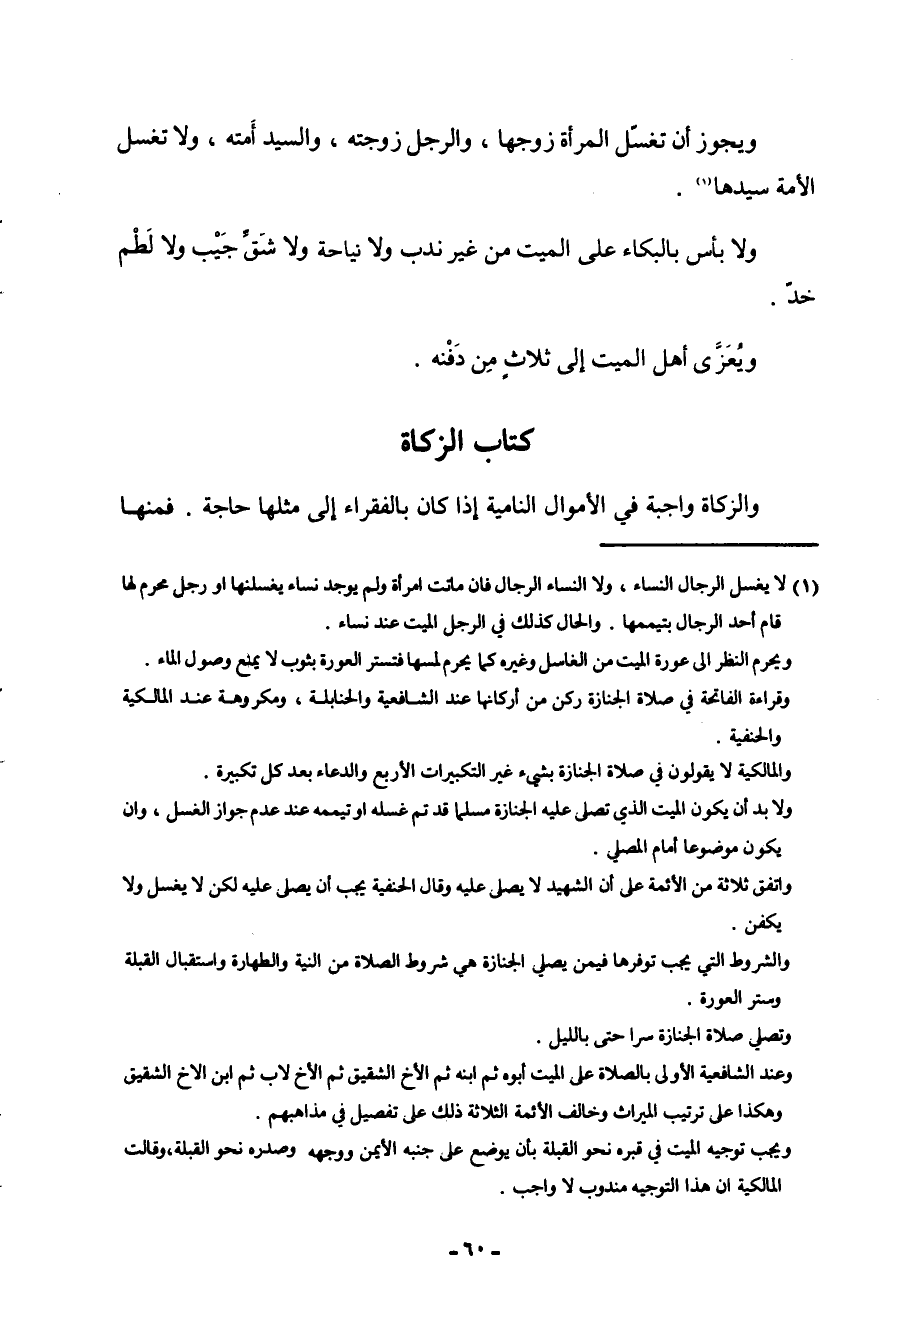 ويجوز أن تغسّل المرأة زوجها ، والرجل زوجته ، والسيد أَمته ، ولا تغسل
الأمة سيدها(١) .
ولا بأس بالبكاء على الميت من غير ندب ولا نياحة ولا شَقِّ جَيْب ولا لَطْم
خدّ .
ويُعَزَّى أهل الميت إلى ثلاثٍ مِن دَفْنه .
كتاب الزكاة
والزكاة واجبة في الأموال النامية إذا كان بالفقراء إلى مثلها حاجة . فمنهـا
(١) لا يغسل الرجال النساء ، ولا النساء الرجال فان ماتت امرأة ولم يوجد نساء يغسلنها او رجل محرم لها
قام أحد الرجال بتيممها . والحال كذلك في الرجل الميت عند نساء .
ويحرم النظر الى عورة الميت من الغاسل وغيره كما يحرم لمسها فتستر العورة بثوب لا يمنع وصول الماء .
وقراءة الفاتحة في صلاة الجنازة ركن من أركانها عند الشـافعية والحنابلـة ، ومكـروهـة عنـد المالـكية
والحنفية .
والمالكية لا يقولون في صلاة الجنازة بشيء غير التكبيرات الأربع والدعاء بعد كل تكبيرة .
ولا بد أن يكون الميت الذي تصلى عليه الجنازة مسلما قد تم غسله او تيممه عند عدم جواز الغسل ، وان
يكون موضوعا أمام المصلي .
واتفق ثلاثة من الأئمة على أن الشهيد لا يصلى عليه وقال الحنفية يجب أن يصلى عليه لكن لا يغسل ولا
يكفن .
والشروط التي يجب توفرها فيمن يصلي الجنازة هي شروط الصلاة من النية والطهارة واستقبال القبلة
وستر العورة .
وتصلي صلاة الجنازة سرا حتى بالليل .
وعند الشافعية الأولى بالصلاة على الميت أبوه ثم ابنه ثم الأخ الشقيق ثم الأخ لاب ثم ابن الاخ الشقيق
وهكذا على ترتيب الميراث وخالف الأئمة الثلاثة ذلك على تفصيل في مذاهبهم .
ويجب توجيه الميت في قبره نحو القبلة بأن يوضع على جنبه الأيمن ووجهه وصدره نحو القبلة،وقالت
المالكية ان هذا التوجيه مندوب لا واجب .
- ٦٠ -